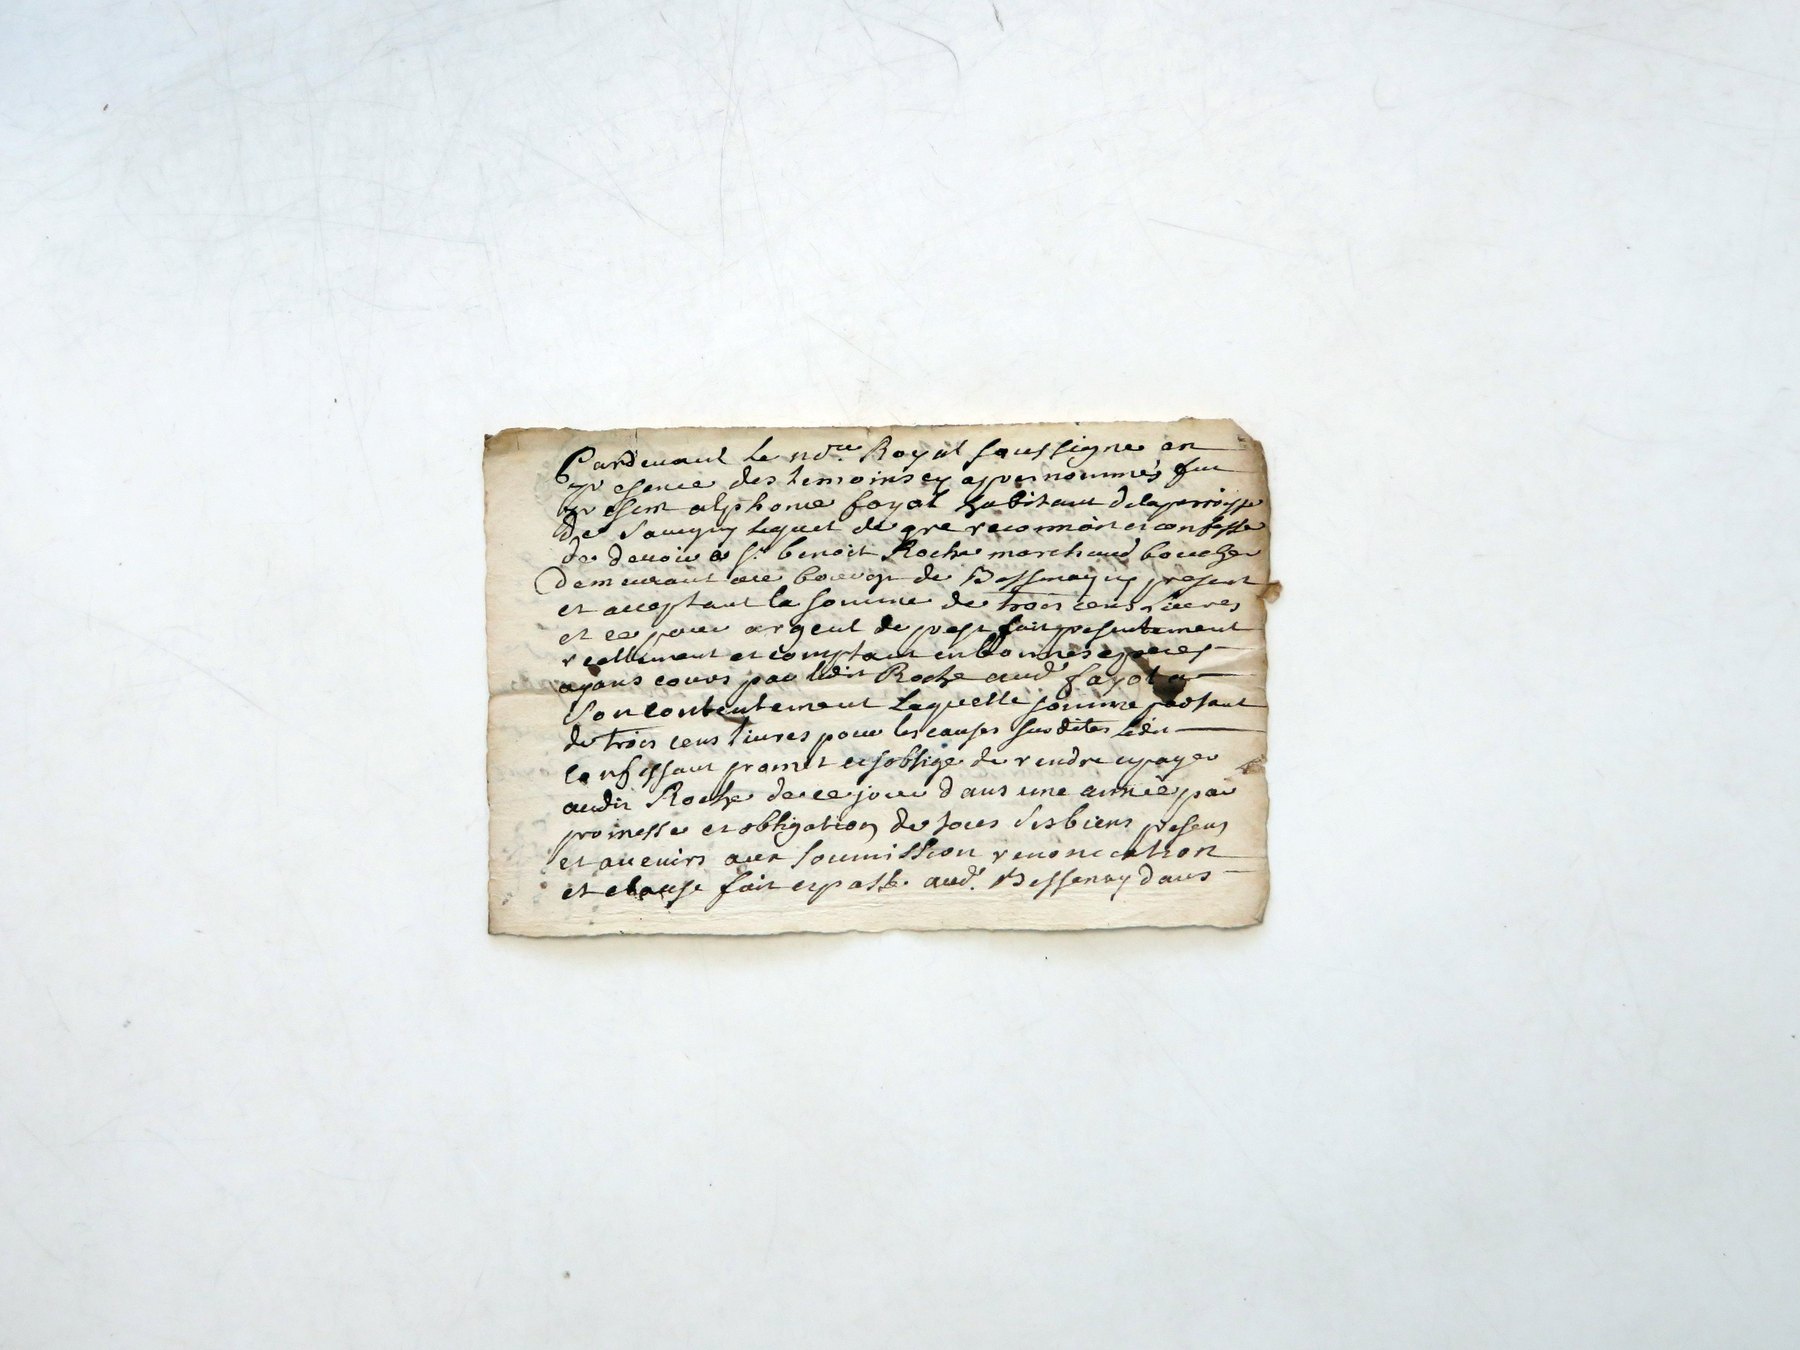 Pardevant le no.re Royal soussigne en
presence des temoins cy apres nommés fut
present alphonse fayol habitant dela parroisse
de Savigny lequel de gre reconnoit et confesse
de devoir a Sr. benoit Roche marchand boucher
demeurant au bourg de Bessenay present
et acceptant la somme de trois cens livres
et ce pour argent de prest fait presentement
reellement et comptant en bonnes especes
ayans cours par ledit Roche aud. fayol a
son contentement laquelle somme partant
de trois cens livres pour les causes susdites ledit
confessant promet et soblige de rendre et payer
audit Roche de ce jour dans une année par
promesse et obligation de tous ses biens presens
et avenirs aux soumission renonciation
et clause fait et passé aud. Bessenay dans